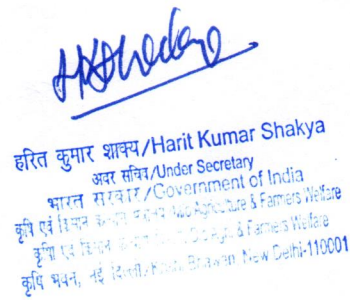 हरित कुमार शाक्य/Harit Kumar Shakya
अवर सचिव/Under Secretary
भारत सरकार/Government of India
कृषि एवं किसान कल्याण Agriculture & Farmers Welfare
कृषि एवं किसान & Farmers Welfare
कृषि भवन, नई दिल्ली/Krishi Bhawan, New Delhi-110001